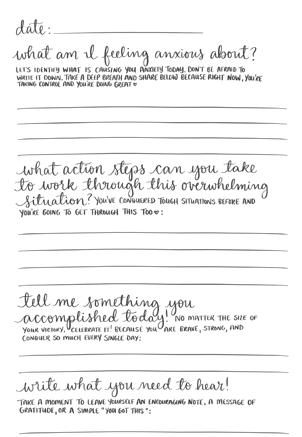 date:
what am I feeling anxious about?
LET'S IDENTIFY WHAT IS CAUSING YOU ANXIETY TODAY, DON'T BE AFRAID TO
WRITE IT DOWN. TAKE A DEEP BREATH AND SHARE BELOW BECAUSE RIGHT NOW, YOU'RE
TAKING CONTROL AND YOU'RE DOING GREAT ♥
what action steps can you take
to work through this overwhelming
situation? YOU'VE CONQUERED TOUGH SITUATIONS BEFORE AND
YOU'RE GOING TO GET THROUGH THIS TOO ♥:
tell me something you
accomplished today! NO MATTER THE SIZE OF
YOUR VICTORY, CELEBRATE IT! BECAUSE YOU ARE BRAVE, STRONG, AND
CONQUER SO MUCH EVERY SINGLE DAY:
write what you need to hear!
TAKE A MOMENT TO LEAVE YOURSELF AN ENCOURAGING NOTE, A MESSAGE OF
GRATITUDE, OR A SIMPLE "YOU GOT THIS":